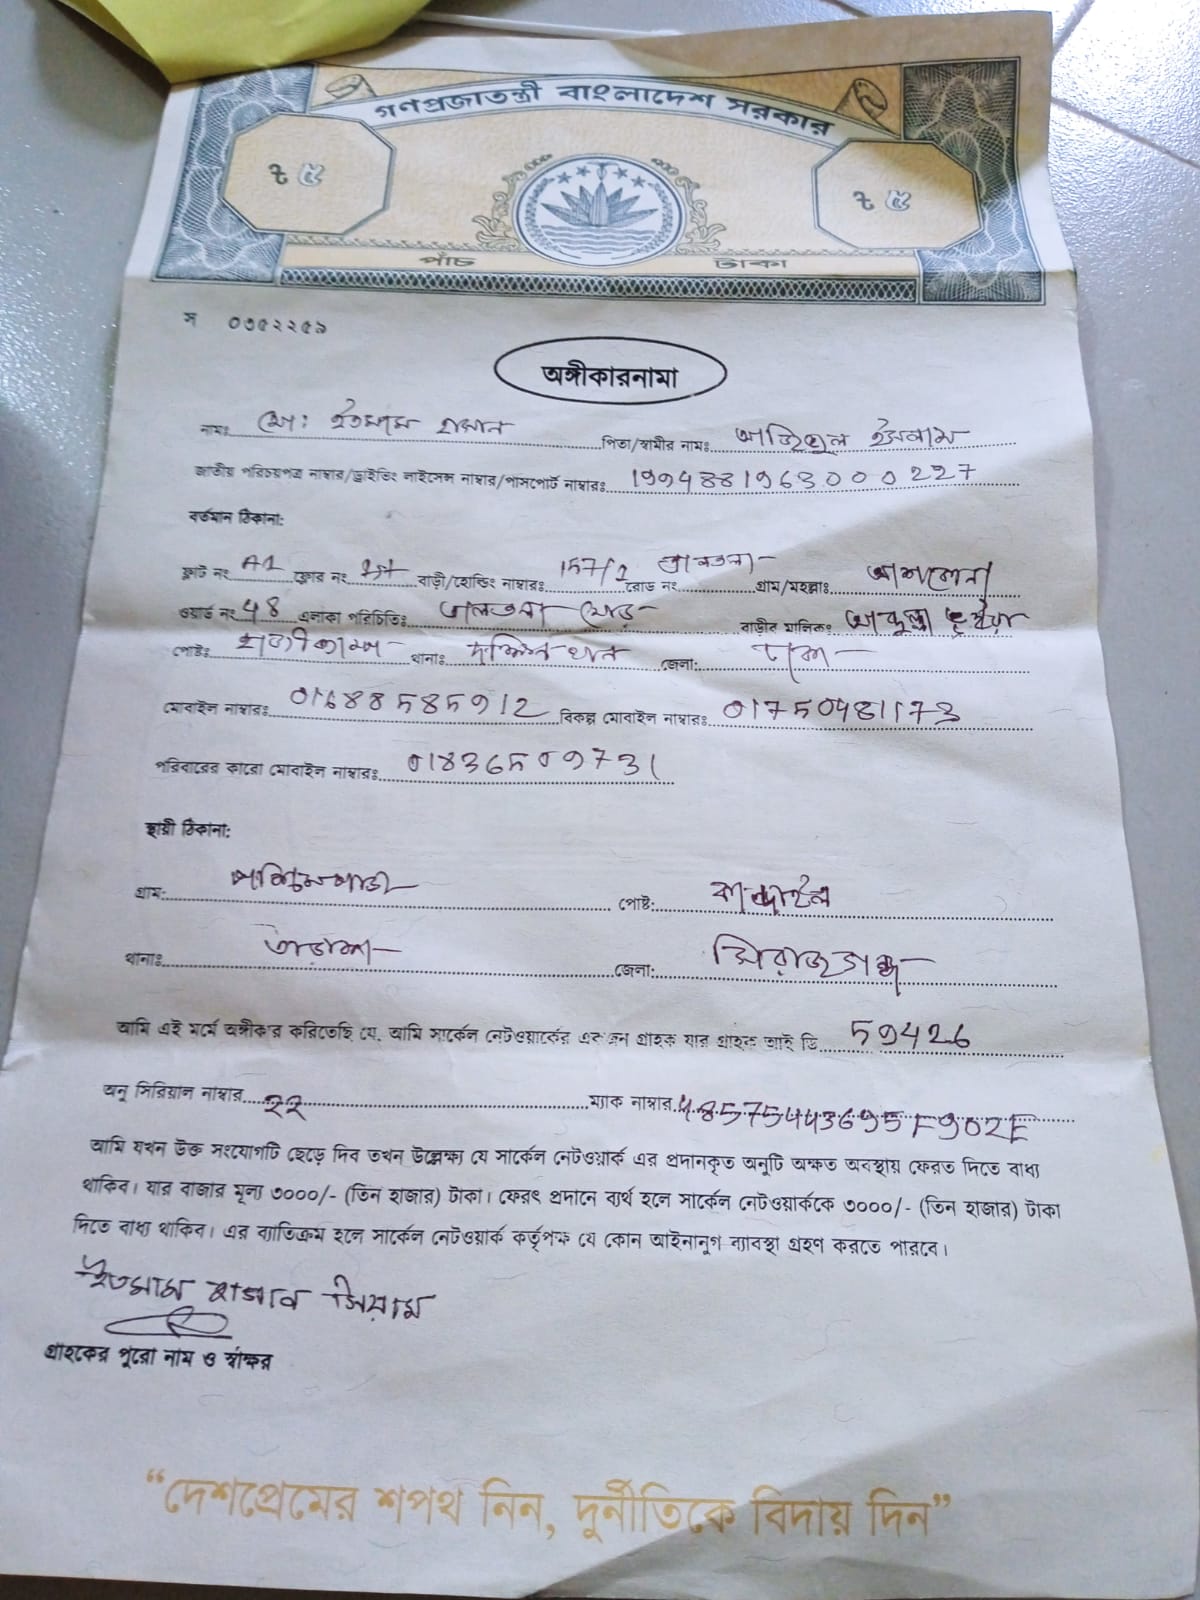 গণপ্রজাতন্ত্রী বাংলাদেশ সরকার
৳ ৫ ৳ ৫
পাঁচ টাকা
স ০৩৫২২৫৯
অঙ্গীকারনামা
নামঃ মো: ইতমাম হাসান পিতা/স্বামীর নামঃ আজিজুল ইসলাম
জাতীয় পরিচয়পত্র নাম্বার/ড্রাইভিং লাইসেন্স নাম্বার/পাসপোর্ট নাম্বারঃ
বর্তমান ঠিকানা:
ফ্লাট নং A1 ফ্লোর নং 1st বাড়ী/হোল্ডিং নাম্বারঃ 157/2 রোড নং গ্রাম/মহল্লাঃ
ওয়ার্ড নং 48 এলাকা পরিচিতিঃ বাড়ীর মালিকঃ
পোষ্টঃ থানাঃ দক্ষিনখান জেলা: ঢাকা
মোবাইল নাম্বারঃ 01688585912 বিকল্প মোবাইল নাম্বারঃ 01750981173
পরিবারের কারো মোবাইল নাম্বারঃ 01836509731
স্থায়ী ঠিকানা:
গ্রাম: পশ্চিমপাড়া পোষ্ট:
থানাঃ তাড়াশ জেলা: সিরাজগঞ্জ
আমি এই মর্মে অঙ্গীকার করিতেছি যে, আমি সার্কেল নেটওয়ার্কের একজন গ্রাহক যার গ্রাহক আই ডি 59426
অনু সিরিয়াল নাম্বার 22 ম্যাক নাম্বার 485754443695F902E
আমি যখন উক্ত সংযোগটি ছেড়ে দিব তখন উল্লেক্ষ্য যে সার্কেল নেটওয়ার্ক এর প্রদানকৃত অনুটি অক্ষত অবস্থায় ফেরত দিতে বাধ্য
থাকিব। যার বাজার মূল্য ৩০০০/- (তিন হাজার) টাকা। ফেরৎ প্রদানে ব্যর্থ হলে সার্কেল নেটওয়ার্ককে ৩০০০/- (তিন হাজার) টাকা
দিতে বাধ্য থাকিব। এর ব্যাতিক্রম হলে সার্কেল নেটওয়ার্ক কর্তৃপক্ষ যে কোন আইনানুগ ব্যাবস্থা গ্রহণ করতে পারবে।
ইতমাম হাসান সিয়াম
গ্রাহকের পুরো নাম ও স্বাক্ষর
“দেশপ্রেমের শপথ নিন, দুর্নীতিকে বিদায় দিন”